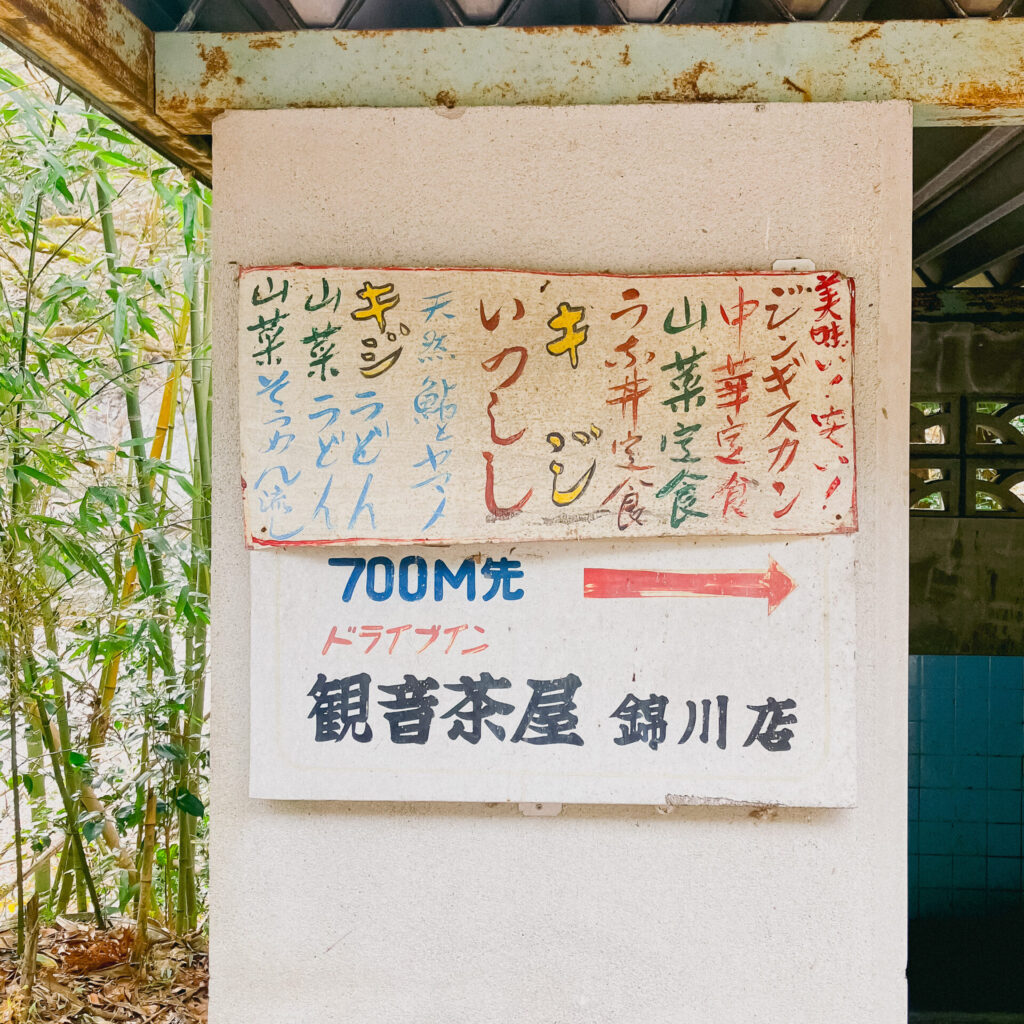 美味い!安い!
ジンギスカン
中華定食
山菜定食
うな丼定食
キジ
いのしし
天然鮎とヤマメ
キジうどん
山菜うどん
山菜そうめん流し
700M先
ドライブイン
観音茶屋 錦川店